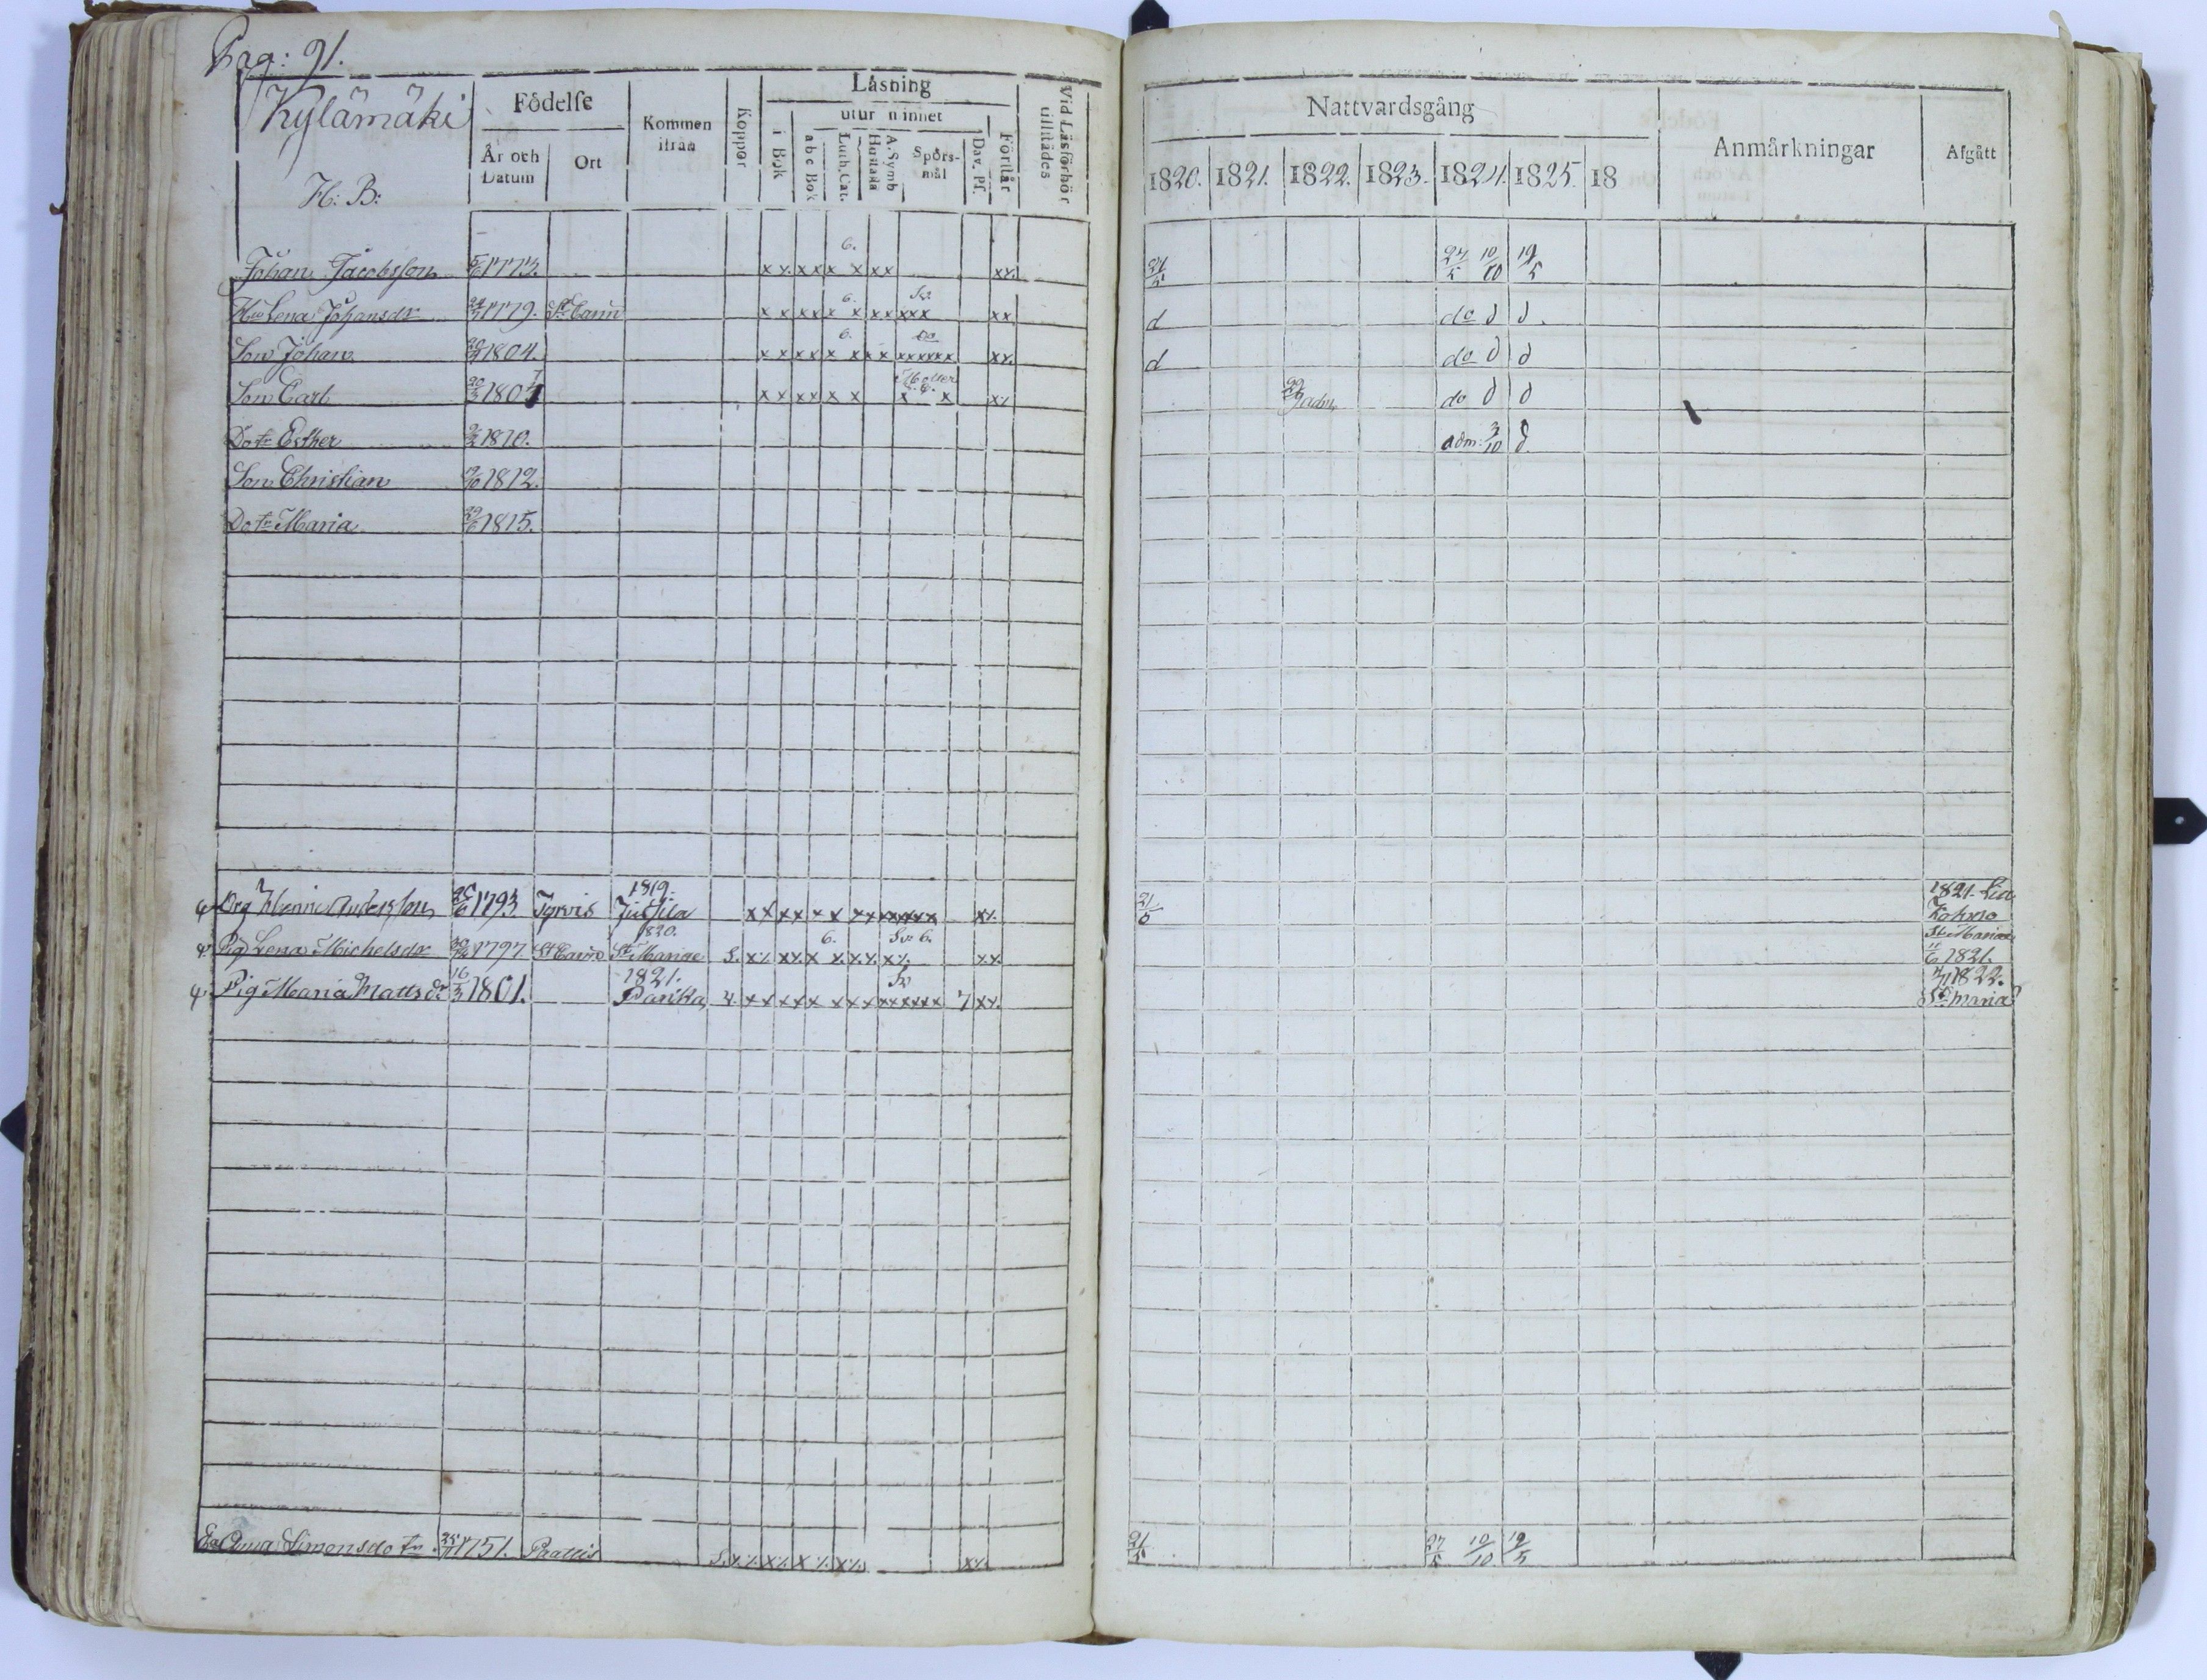 Pag: 91.
Kylämäki
H: B:
Födelse
År och Datum
Ort
Kommen ifrån
Koppor
Läsning
i Bok
utur minnet
a b c Bok
Luth. Cat.
Hustafla
A. Symb
Spörsmål
Dav. Ps.
Förstår
Vid Läsförhör tillstädes
Nattvardsgång
1820. 1821. 1822. 1823. 1824. 1825. 18
Anmärkningar
Afgått
6.
Johan Jacobsson 5/6 1773. x x x x x x x x x x. 21/5 27/5 10/10 19/5
6. Sv.
Hu Lena Johansdr 1779. St Carin x x x x x x x x x x x x x d do d d.
6. do
Son Johan 1804. x x x x x x x x x x x x x x x x. d do d d
Son Carl 1805 x x x x x x x x x x adm. do d d
Dotr Esther 9/2 1810. adm: 3/10 d.
Son Christian 1812.
Dotr Maria 1815.
1819. 1821. Lill
Drg Henric Andersson 1793 Jusila x x x x x x x x x x x x x x x x. 21/5
1820. 6. Sv 6. St Mariae
Pig Lena Michelsdr 1797 St Carin St Mariae S. x x. x x. x x. x. x. x x. x x 11/6 1821.
1821. Sv 1822.
Pig Maria Mattsdr 16/3 1801. Parika x x x x x x x x x x x x x x 7 x x. St Maria
Anna Simonsdotr 1751. Paattis S. x x. x x. x x. x x. x x. 21/5 27/5 10/10 19/5